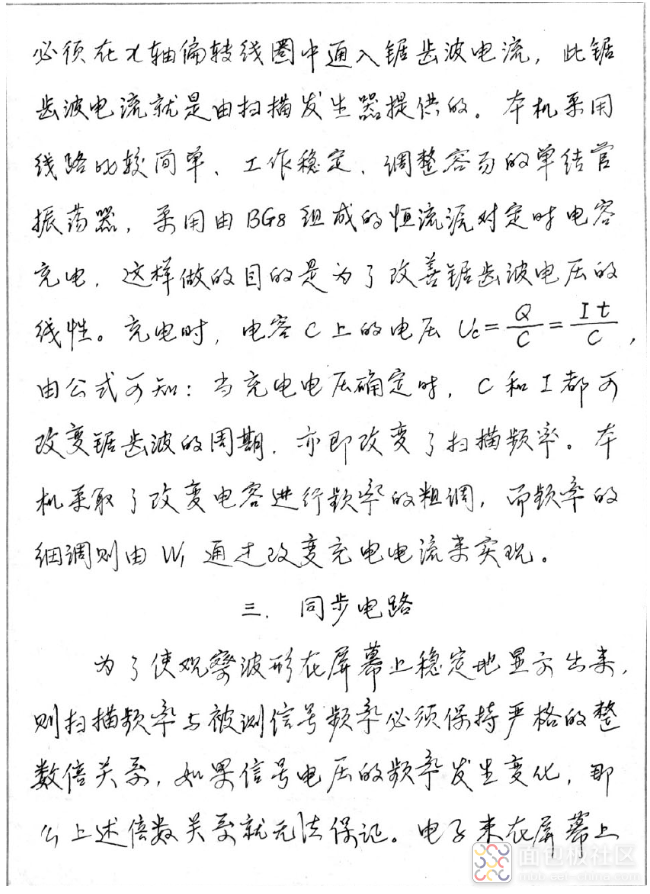 必须在X轴偏转线圈中通入锯齿波电流，此锯
齿波电流就是由扫描发生器提供的。本机采用
线路比较简单、工作稳定、调整容易的单结管
振荡器，采用由BG8组成的恒流源对定时电容
充电，这样做的目的是为了改善锯齿波电压的
线性。充电时，电容C上的电压 Uc=Q/C=It/C，
由公式可知：当充电电压确定时，C和I都可
改变锯齿波的周期，亦即改变了扫描频率。本
机采取了改变电容进行频率的粗调，而频率的
细调则由W1通过改变充电电流来实现。
三、同步电路
为了使观察波形在屏幕上稳定地显示出来，
则扫描频率与被测信号频率必须保持严格的整
数倍关系，如果信号电压的频率发生变化，那
么上述倍数关系就无法保证。电子束在屏幕上
面包板社区
mbb.eet-china.com